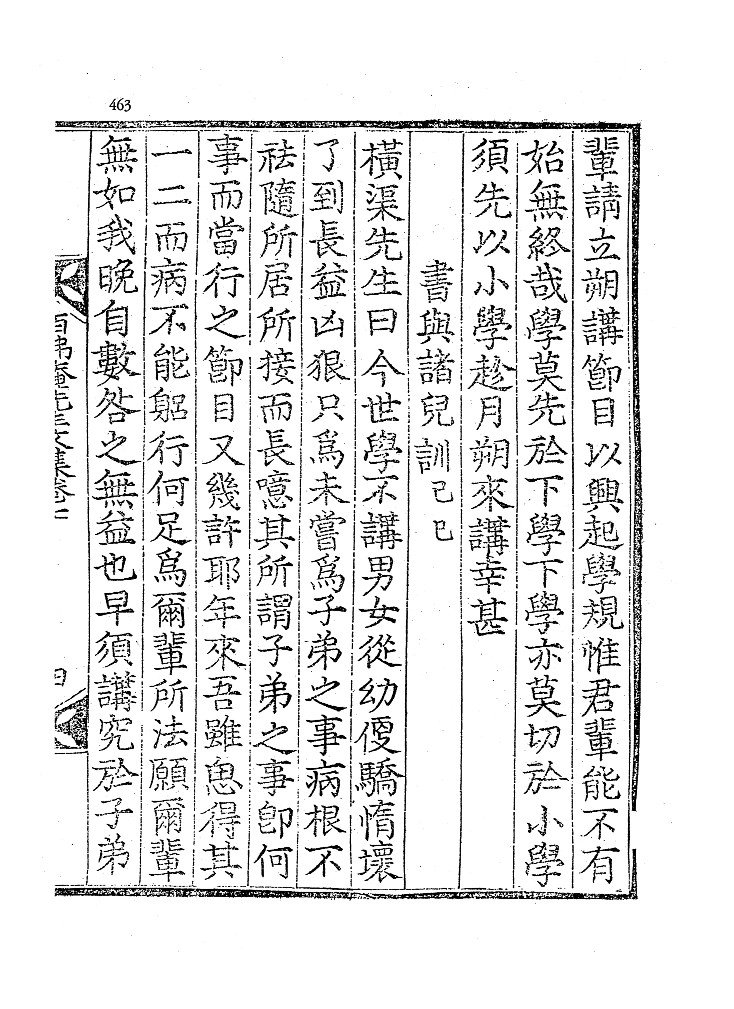 463
輩請立朔講節目以興起學規惟君輩能不有
始無終哉學莫先於下學下學亦莫切於小學
須先以小學趁月朔來講幸甚
書與諸兒訓己巳
橫渠先生曰今世學不講男女從幼便驕惰壞
了到長益凶狠只爲未嘗爲子弟之事病根不
祛隨所居所接而長噫其所謂子弟之事卽何
事而當行之節目又幾許耶年來吾雖思得其
一二而病不能躳行何足爲爾輩所法願爾輩
無如我晚自數咎之無益也早須講究於子弟
百弗庵先生文集卷十